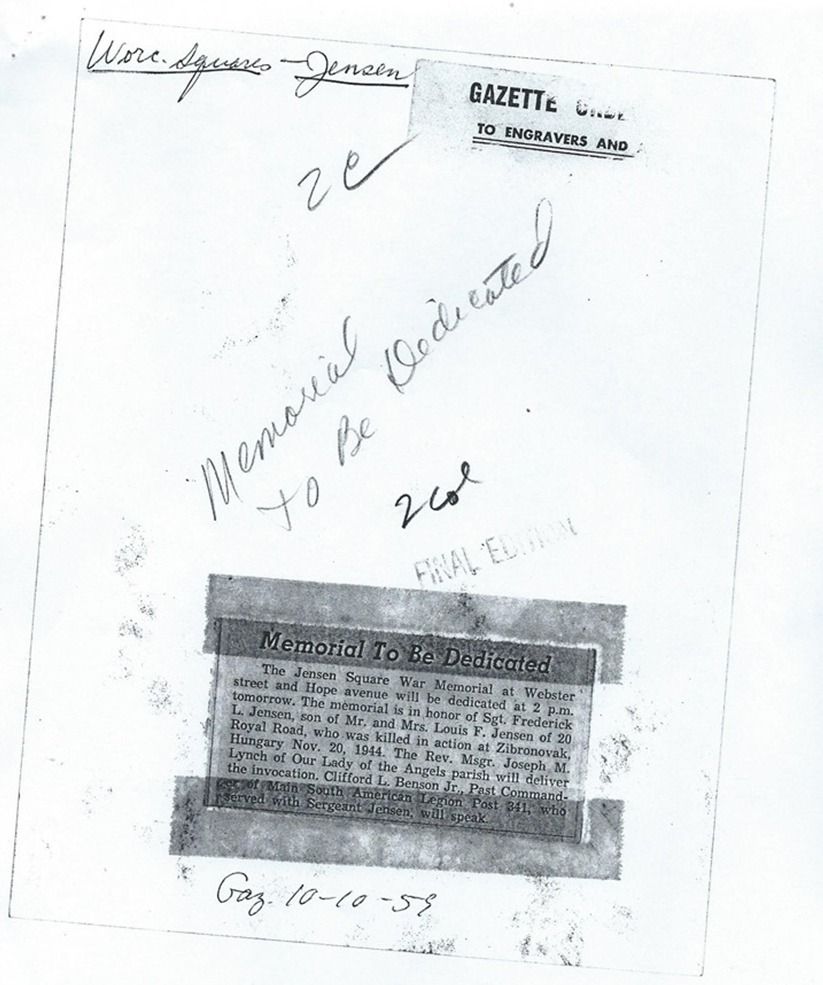 Worc. Squares - Jensen
GAZETTE
TO ENGRAVERS AND
2C
Memorial
To Be Dedicated
2 Col
FINAL EDITION
Memorial To Be Dedicated
The Jensen Square War Memorial at Webster
street and Hope avenue will be dedicated at 2 p.m.
tomorrow. The memorial is in honor of Sgt. Frederick
L. Jensen, son of Mr. and Mrs. Louis F. Jensen of 20
Royal Road, who was killed in action at Zibronovak,
Hungary Nov. 20, 1944. The Rev. Msgr. Joseph M.
Lynch of Our Lady of the Angels parish will deliver
the invocation. Clifford L. Benson Jr., Past Command-
er of Main South American Legion Post 341, who
served with Sergeant Jensen, will speak.
Gaz. 10-10-59